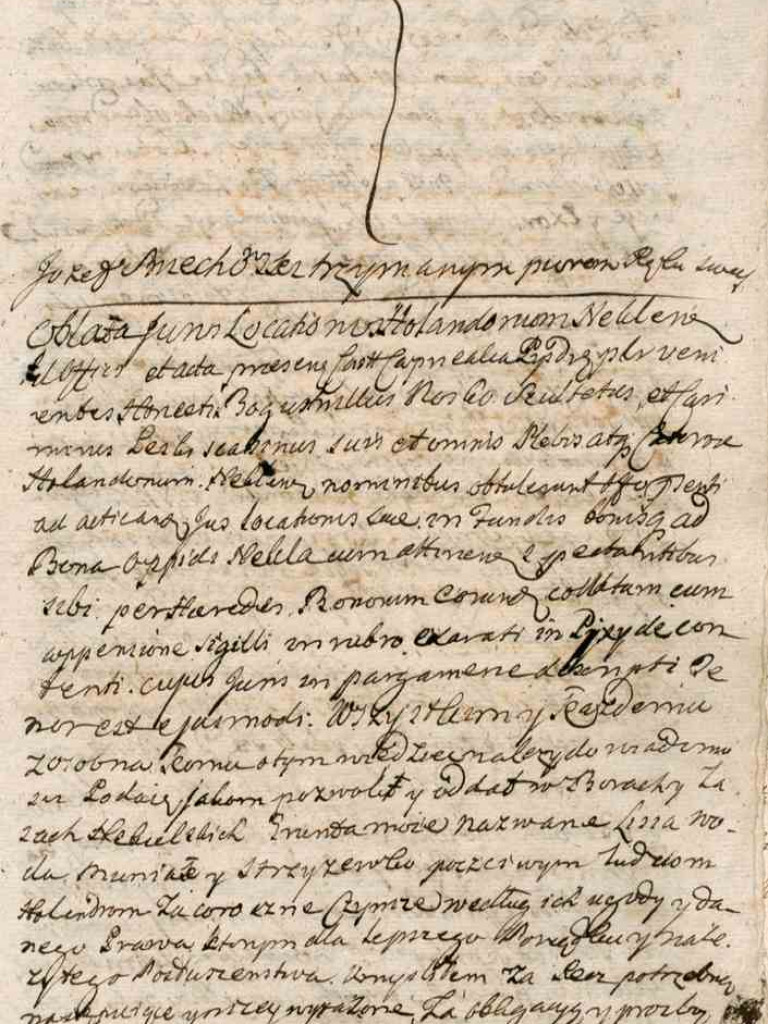 Jozef Miecho trzymanym piorem Ręką swoią
Oblata Juris Locationis Holandorum Neklens
Ad Offici et acta praesens Castr Capnealia Pyzdr pls veni
entes Honesti Bogumillus Rosko Scultetus et Casi
mirus Leski scabinus suis et omnis Plebis atq
Holandorum Neklens nominibus obtulerunt Officio pnti
ad acticand Jus locationis suae in Fundis bonisq ad
Bona Oppidi Nekla cum attinen spectantibus
sibi per Haeredes Bonorum eorund collatum cum
appensione sigilli in rubro exarati in Pixyde con
tenti. cujus Juris in pargamene descripti Te
nor est ejusmodi. Wszystkim y Każdemu
zosobna komu otym wiedziec nalezy do wiadomo
sci Podaię, jakom pozwolił y oddał w Borach y La
sach Nekielskich Grunta moie nazwane Lissa wo-
da y Strzyzewko poczciwym ludziom
Holendrom Za coroczne Czynsze według ich ugody y da-
nego Prawa, ktorym dla lepszego Porządku y nale.
zytego Posłuszenstwa. umysliłem Za Rzecz potrzebną
nastepuiące y nizey wyrazone, Za obligacyą y prozby